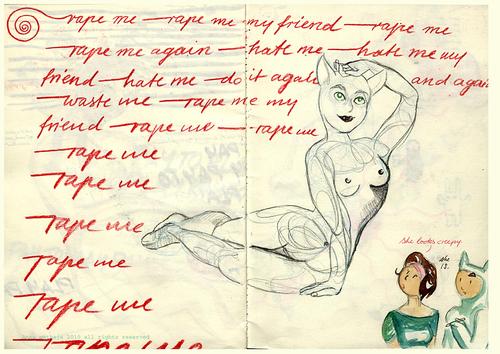 rape me — rape me my friend — rape me
rape me again — hate me — hate me my
friend — hate me — do it again and again
— waste me — rape me my
friend — rape me — rape me
rape me
rape me
rape me
rape me
rape me
rape me
she looks creepy
she is.
2010 all rights reserved